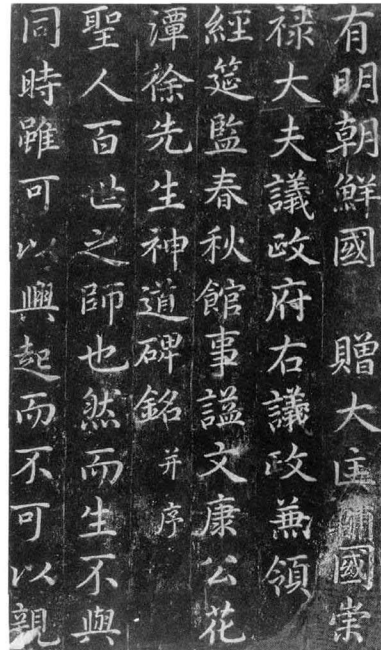 有明朝鮮國 贈大匡輔國崇
禄大夫議政府右議政兼領
經筵監春秋館事謚文康公花
潭徐先生神道碑銘 并序
聖人百世之師也然而生不與
同時雖可以興起而不可以親